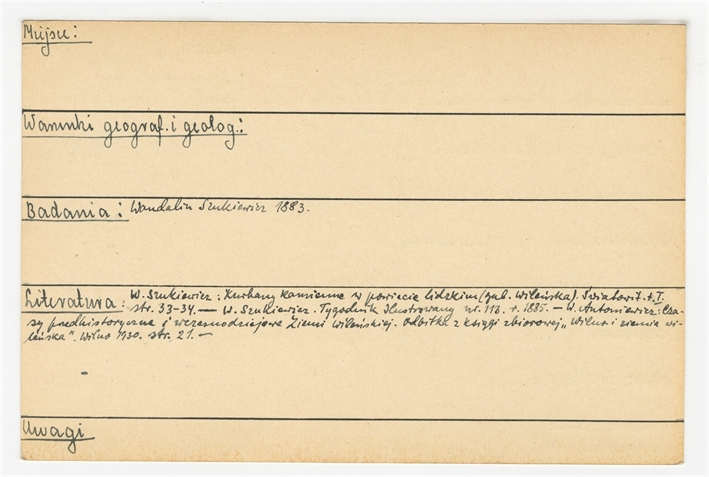 Miejsce:
Warunki geograf. i geolog.:
Badania: Wandalin Szukiewicz 1883.
Literatura: W. Szukiewicz: Kurhany kamienne w powiecie Lidzkim (gub. Wileńska). Światowit. t. I.
str. 33-34. — W. Szukiewicz. Tygodnik Ilustrowany nr. 116. r. 1885. — W. Antoniewicz: Cza-
sy przedhistoryczne i wczesnodziejowe Ziemi Wileńskiej. Odbitka z księgi zbiorowej „Wilno i ziemia wi-
leńska". Wilno 1930. str. 21. —
Uwagi